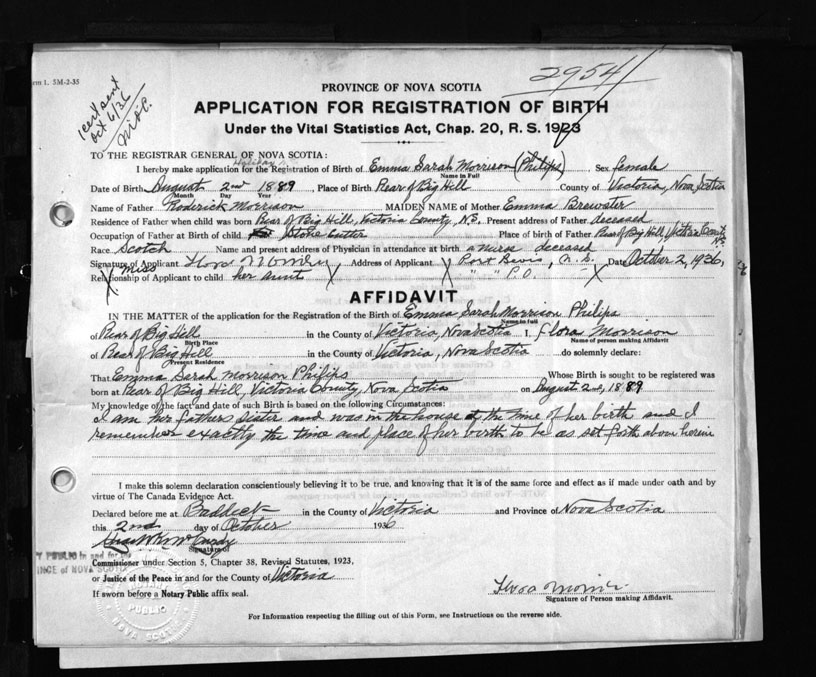 Form 1. 5M-2-35
2954
1 cert sent
Oct 6/36
PROVINCE OF NOVA SCOTIA
APPLICATION FOR REGISTRATION OF BIRTH
Under the Vital Statistics Act, Chap. 20, R. S. 1923
TO THE REGISTRAR GENERAL OF NOVA SCOTIA:
I hereby make application for the Registration of Birth of Emma Sarah Morrison (Philips) Sex female
Name in Full
Date of Birth August 2nd 1889 Place of Birth Rear of Big Hill County of Victoria, Nova Scotia
Month Day Year
Name of Father Roderick Morrison MAIDEN NAME of Mother Emma Brewster
Residence of Father when child was born Rear of Big Hill, Victoria County, N.S. Present address of Father deceased
Occupation of Father at Birth of child Stone Cutter Place of birth of Father Rear of Big Hill, Victoria County N.S.
Race Scotch Name and present address of Physician in attendance at birth a nurse deceased
Signature of Applicant Flora Address of Applicant Port Bevis, N.S. Date October 2, 1936,
X Miss X X " " P.O. X
Relationship of Applicant to child her aunt
AFFIDAVIT
IN THE MATTER of the application for the Registration of the Birth of Emma Sarah Morrison Philips
Name in full
of Rear of Big Hill in the County of Victoria, Nova Scotia I, Flora Morrison
Birth Place Name of person making Affidavit
of Rear of Big Hill in the County of Victoria, Nova Scotia do solemnly declare:
Present Residence
That Emma Sarah Morrison Philips Whose Birth is sought to be registered was
born at Rear of Big Hill, Victoria County, Nova Scotia on August 2nd, 1889
My knowledge of the fact and date of such Birth is based on the following Circumstances:
I am her fathers sister and was in the house at the time of her birth and I
remember exactly the time and place of her birth to be as set forth above herein
I make this solemn declaration conscientiously believing it to be true, and knowing that it is of the same force and effect as if made under oath and by
virtue of The Canada Evidence Act.
Declared before me at Baddeck in the County of Victoria and Province of Nova Scotia
this 2nd day of October 1936
Signature of
Y PUBLIC in and for the
INCE of NOVA SCOTIA
Commissioner under Section 5, Chapter 38, Revised Statutes, 1923,
or Justice of the Peace in and for the County of Victoria
If sworn before a Notary Public affix seal.
NOTARY PUBLIC
NOVA SCOTIA
Flora
Signature of Person making Affidavit.
For Information respecting the filling out of this Form, see Instructions on the reverse side.